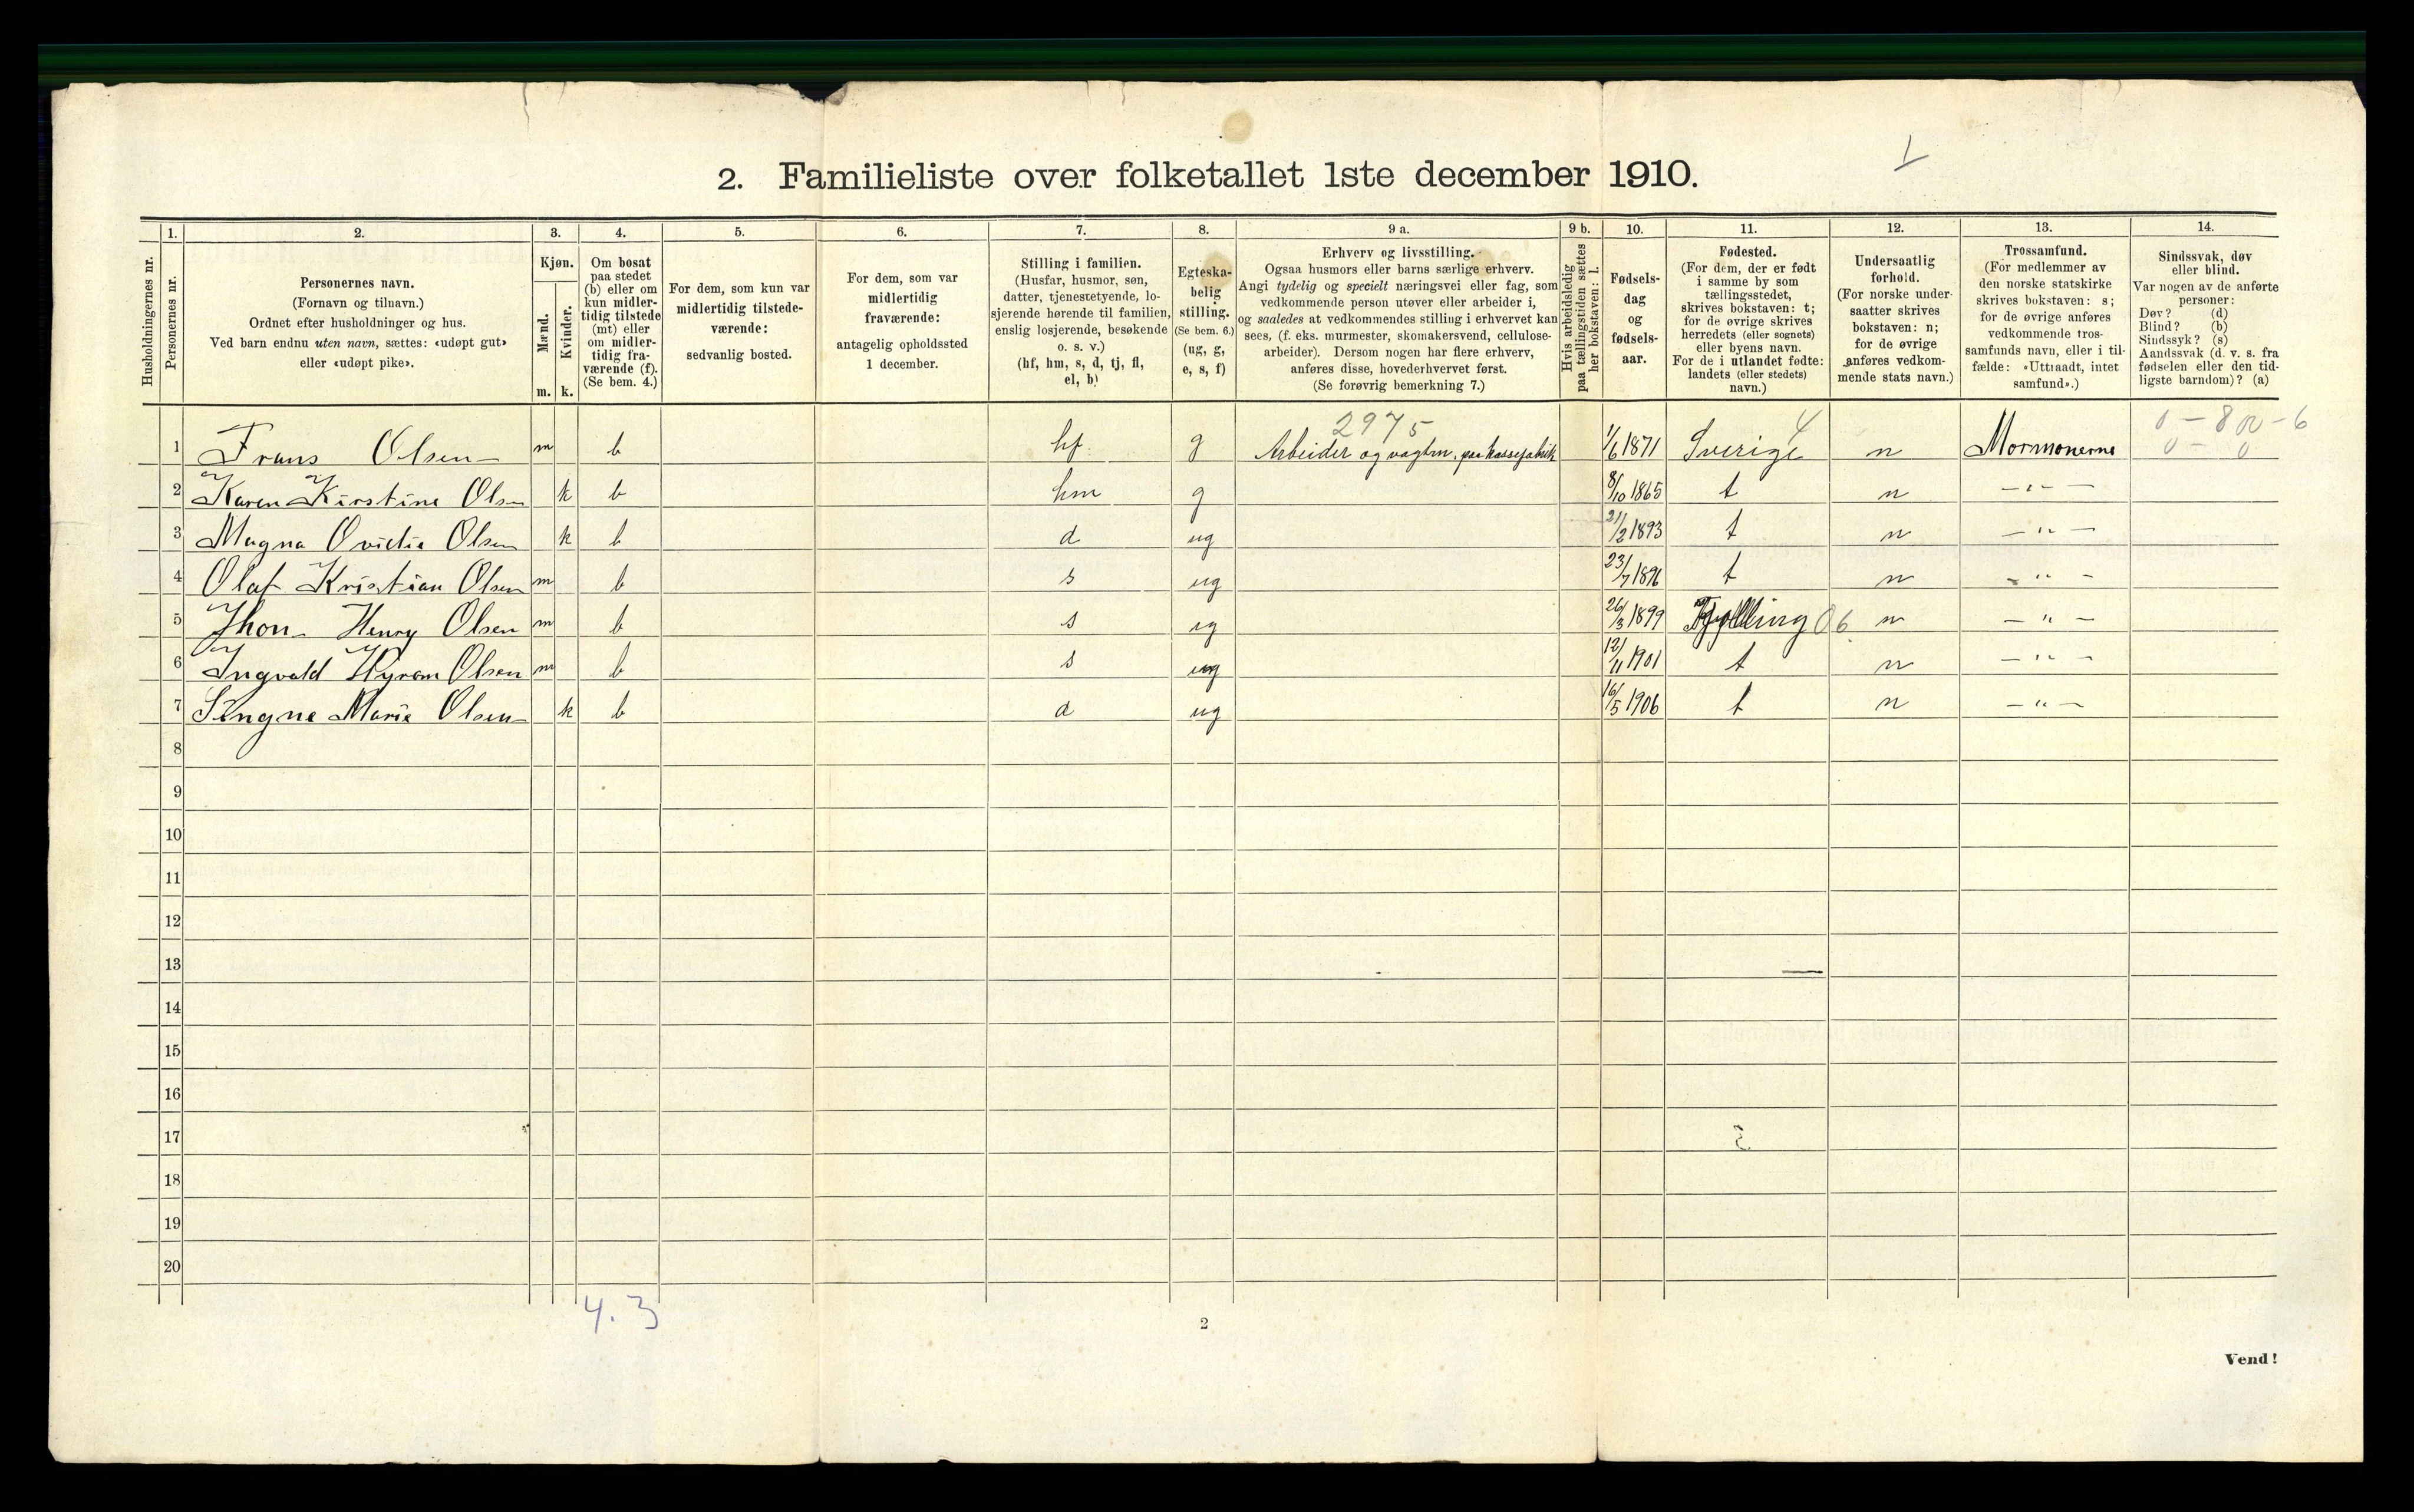 1
2. Familieliste over folketallet 1ste december 1910.
Husholdningernes nr.
1.
Personernes nr.
2.
Personernes navn.
(Fornavn og tilnavn.)
Ordnet efter husholdninger og hus.
Ved barn endnu uten navn, sættes: «udøpt gut»
eller «udøpt pike».
3.
Kjøn.
Mænd.
m.
Kvinder.
k.
4.
Om bosat
paa stedet
(b) eller om
kun midler-
tidig tilstede
(mt) eller
om midler-
tidig fra-
værende (f).
(Se bem. 4.)
5.
For dem, som kun var
midlertidig tilstede-
værende:
sedvanlig bosted.
6.
For dem, som var
midlertidig
fraværende:
antagelig opholdssted
1 december.
7.
Stilling i familien.
(Husfar, husmor, søn,
datter, tjenestetyende, lo-
sjerende hørende til familien,
enslig losjerende, besøkende
o. s. v.)
(hf, hm, s, d, tj, fl,
el, b)
8.
Egteska-
belig
stilling.
(Se bem. 6.)
(ug, g,
e, s, f)
9 a.
Erhverv og livsstilling.
Ogsaa husmors eller barns særlige erhverv.
Angi tydelig og specielt næringsvei eller fag, som
vedkommende person utøver eller arbeider i,
og saaledes at vedkommendes stilling i erhvervet kan
sees, (f. eks. murmester, skomakersvend, cellulose-
arbeider). Dersom nogen har flere erhverv,
anføres disse, hovederhvervet først.
(Se forøvrig bemerkning 7.)
9 b.
Hvis arbeidsledig
paa tællingstiden sættes
her bokstaven: l.
10.
Fødsels-
dag
og
fødsels-
aar.
11.
Fødested.
(For dem, der er født
i samme by som
tællingsstedet,
skrives bokstaven: t;
for de øvrige skrives
herredets (eller sognets)
eller byens navn.
For de i utlandet fødte:
landets (eller stedets)
navn.)
12.
Undersaatlig
forhold.
(For norske under-
saatter skrives
bokstaven: n;
for de øvrige
anføres vedkom-
mende stats navn.)
13.
Trossamfund.
(For medlemmer av
den norske statskirke
skrives bokstaven: s;
for de øvrige anføres
vedkommende tros-
samfunds navn, eller i til-
fælde: «Uttraadt, intet
samfund».)
14.
Sindssvak, døv
eller blind.
Var nogen av de anførte
personer:
Døv? (d)
Blind? (b)
Sindssyk? (s)
Aandssvak (d. v. s. fra
fødselen eller den tid-
ligste barndom)? (a)
2975 4 0 - 800 - 6
1 Frans Olsen m b hf g Arbeider og vagtm. paa kassefabrik 1/6 1871 Sverige n Mormonerne 0 - 0
2 Karen Kirstine Olsen k b hm g 8/10 1865 t n — " —
3 Magna Ovidia Olsen k b d ug 21/2 1893 t n — " —
4 Olaf Kristian Olsen m b s ug 23/7 1896 t n — " —
5 Jhon Henry Olsen m b s ug 26/3 1899 Tjølling 06 n — " —
6 Ingvald Hyrom Olsen m b s ug 12/11 1901 t n — " —
7 Singne Marie Olsen k b d ug 16/5 1906 t n — " —
8
9
10
11
12
13
14
15
16
17
18
19
20
4. 3
2
Vend!